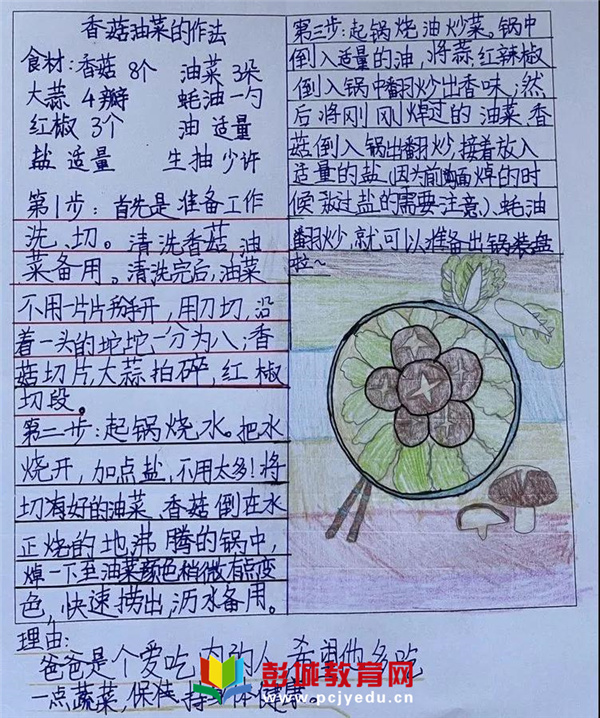 香菇油菜的作法
食材:香菇 8个 油菜 3朵
大蒜 4瓣 蚝油一勺
红椒 3个 油 适量
盐 适量 生抽 少许
第1步:首先是准备工作
洗、切。清洗香菇 油
菜备用。清洗完后,油菜
不用一片片掰开,用刀切,沿
着一头的坨坨一分为八,香
菇切片,大蒜拍碎,红椒
切段。
第二步:起锅烧水。把水
烧开,加点盐,不用太多!将
切好的油菜、香菇倒在水
正烧的地沸腾的锅中,
焯一下至油菜颜色稍微有点变
色,快速捞出,沥水备用。
第三步:起锅烧油炒菜。锅中
倒入适量的油,将蒜,红辣椒
倒入锅中翻炒出香味,然
后将刚刚焯过的油菜、香
菇倒入锅出翻炒,接着放入
适量的盐(因为前面焯的时
候放过盐的需要注意)、蚝油
翻炒,就可以准备出锅装盘
啦~
理由:
爸爸是个爱吃肉的人,希望他多吃
一点蔬菜,保持身体健康。
彭城教育网
www.pcjyedu.cn